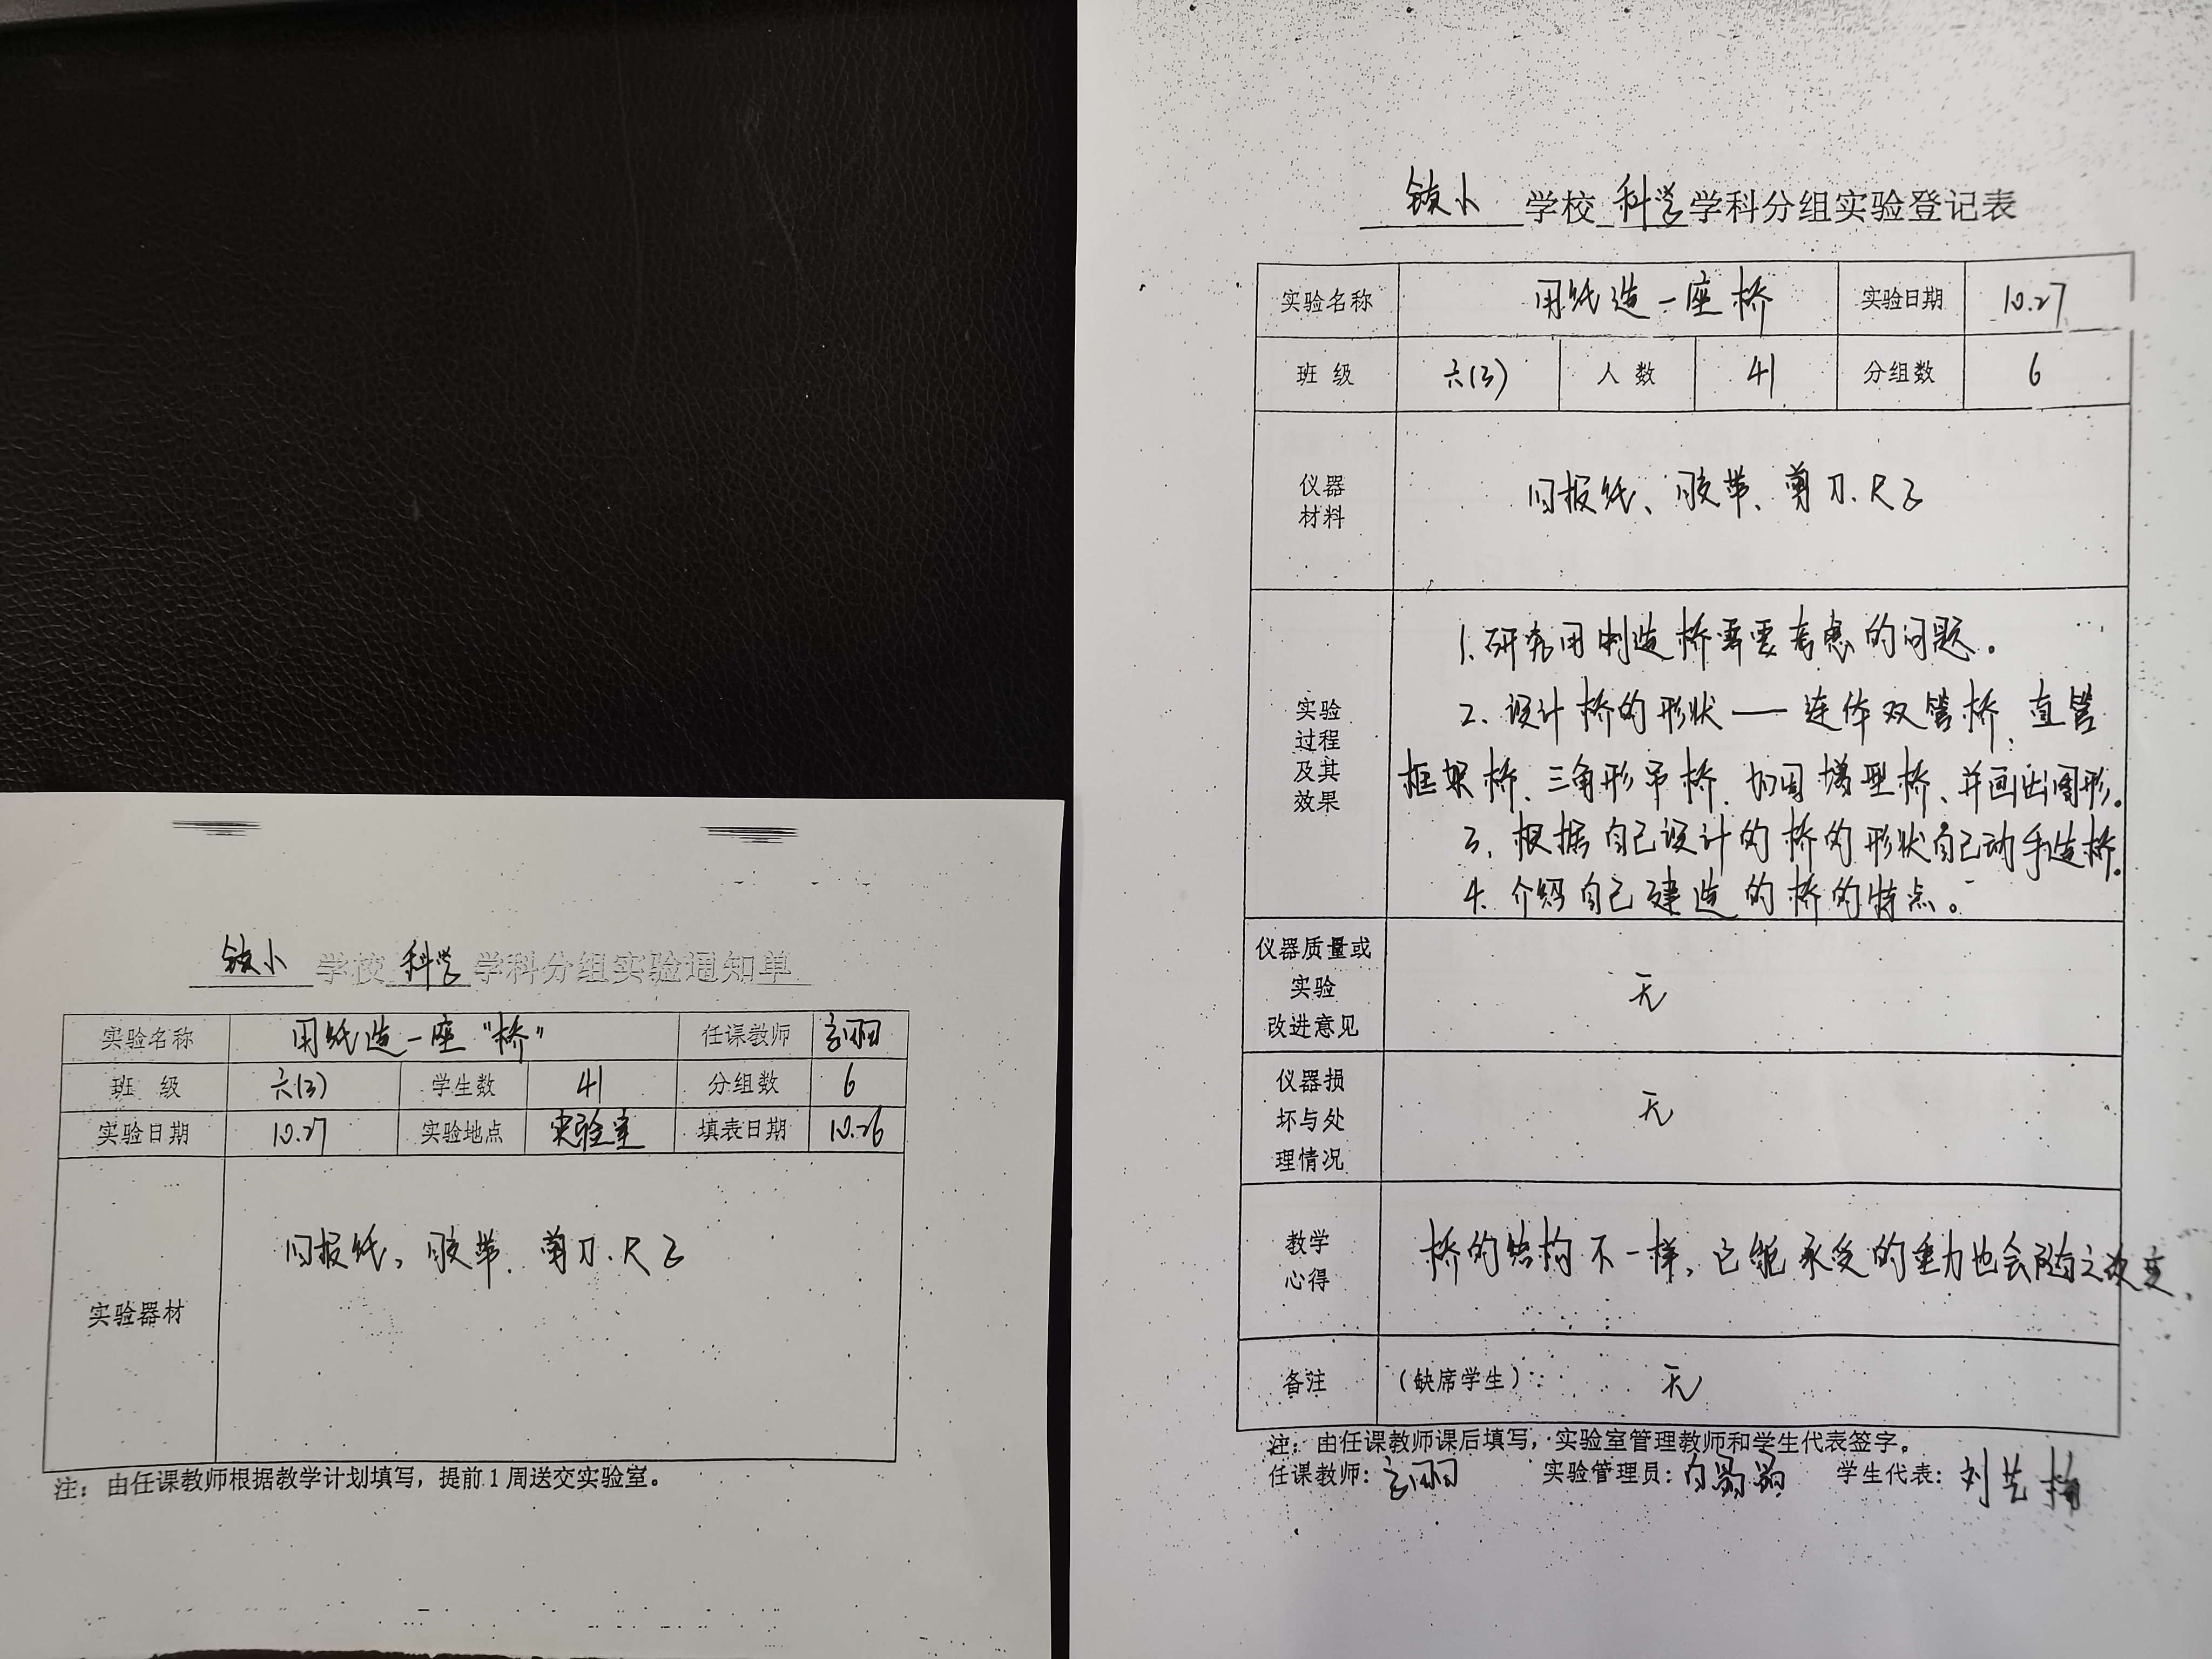 学校 科学 学科分组实验通知单
实验名称 用纸造一座“桥” 任课教师
班 级 六(3) 学生数 41 分组数 6
实验日期 10.27 实验地点 实验室 填表日期 10.26
实验器材 旧报纸、胶带、剪刀、尺子
注：由任课教师根据教学计划填写，提前1周送交实验室。
学校 科学 学科分组实验登记表
实验名称 用纸造一座桥 实验日期 10.27
班 级 六(3) 人 数 41 分组数 6
仪器
材料
旧报纸、胶带、剪刀、尺子
实验
过程
及其
效果
1.研究用制造桥需要考虑的问题。
2、设计桥的形状——连体双管桥、直管
框架桥、三角形吊桥、加固增型桥、并画出图形。
3、根据自己设计的桥的形状自己动手造桥。
4、介绍自己建造的桥的特点。
仪器质量或
实验
改进意见
无
仪器损
坏与处
理情况
无
教学
心得
桥的结构不一样，它能承受的重力也会随之改变。
备注 （缺席学生）： 无
注：由任课教师课后填写，实验室管理教师和学生代表签字。
任课教师： 实验管理员： 学生代表：刘艺